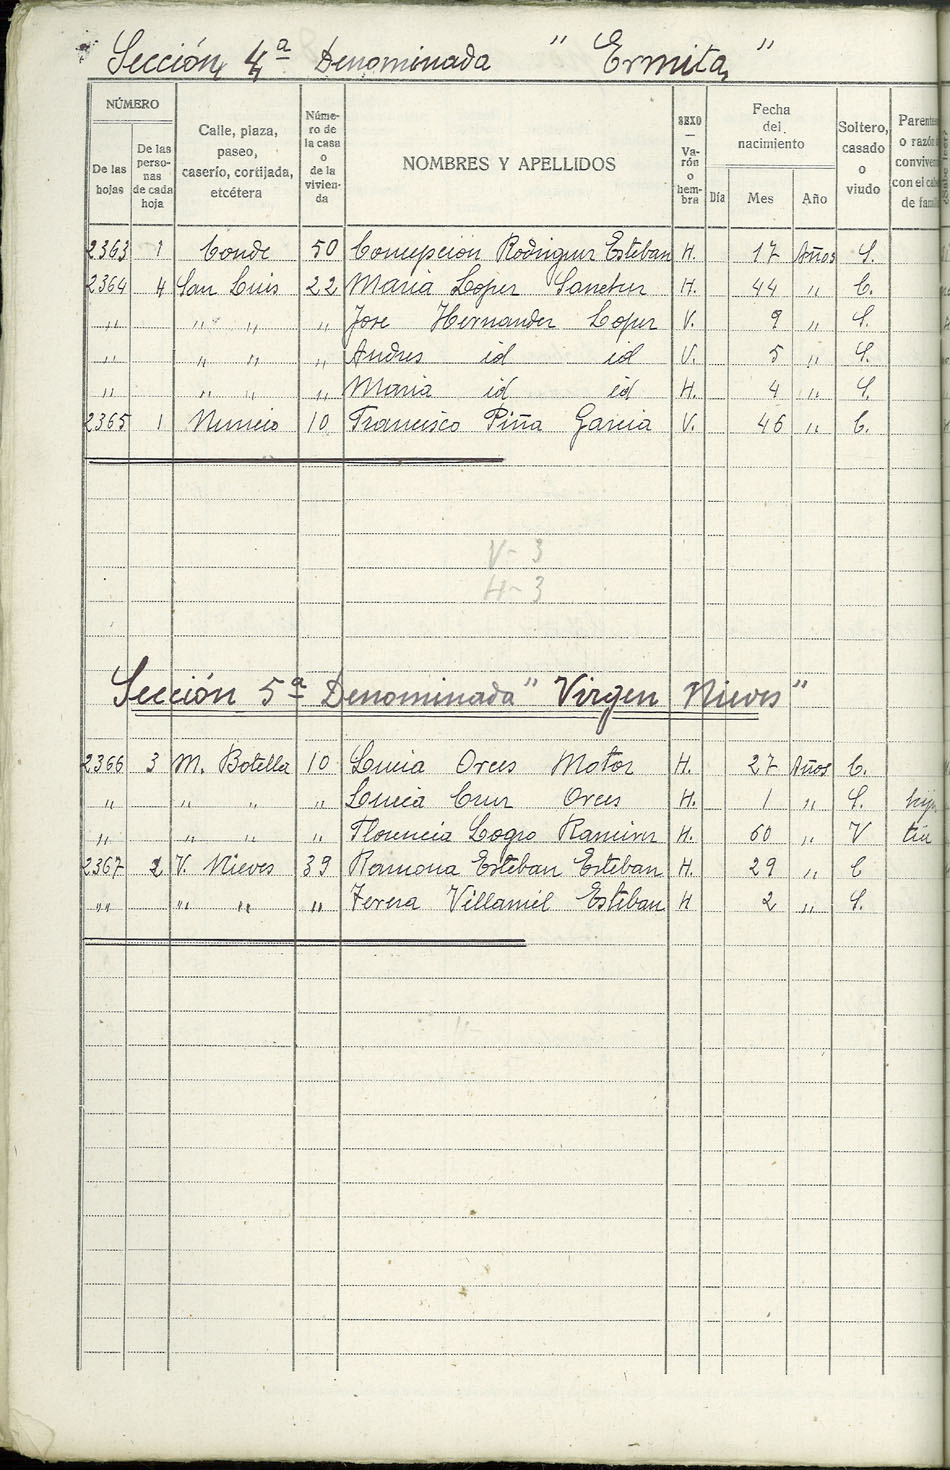 Sección 4ª Denominada " Ermita "
NÚMERO
De las hojas
De las perso-nas de cada hoja
Calle, plaza, paseo, caserío, cortijada, etcétera
Núme-ro de la casa o de la vivien-da
NOMBRES Y APELLIDOS
SEXO — Va-rón o hem-bra
Fecha del nacimiento
Día Mes Año
Soltero, casado o viudo
o razón
con el
de
2363 1 Conde 50 Concepcion Rodriguez Esteban H. 17 Años S.
2364 4 San Luis 22 Maria Lopez Sanchez H. 44 " C.
" " " " Jose Hernandez Lopez V. 9 " S.
" " " " Andres id id V. 5 " S.
" " " " Maria id id H. 4 " S.
2365 1 Nuncio 10 Francisco Piña Garcia V. 46 " C.
V- 3
H- 3
Sección 5ª Denominada " Virgen Nieves "
2366 3 M. Botella 10 Lucia Orces Motos H. 27 Años C.
" " " " Lucia Cruz Orces H. 1 " S.
" " " " Florencia Logro Ramirez H. 60 " V
2367 2 V. Nieves 39 Ramona Esteban Esteban H. 29 " C
" " " " Teresa Villamiel Esteban H 2 " S.